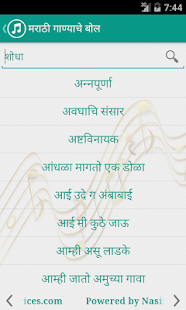 7:44
मराठी गाण्याचे बोल
शोधा
अन्नपूर्णा
अवघाचि संसार
अष्टविनायक
आंधळा मागतो एक डोळा
आई उदे ग अंबाबाई
आई मी कुठे जाऊ
आम्ही असू लाडके
आम्ही जातो अमुच्या गावा
ices.com Powered by Nasi